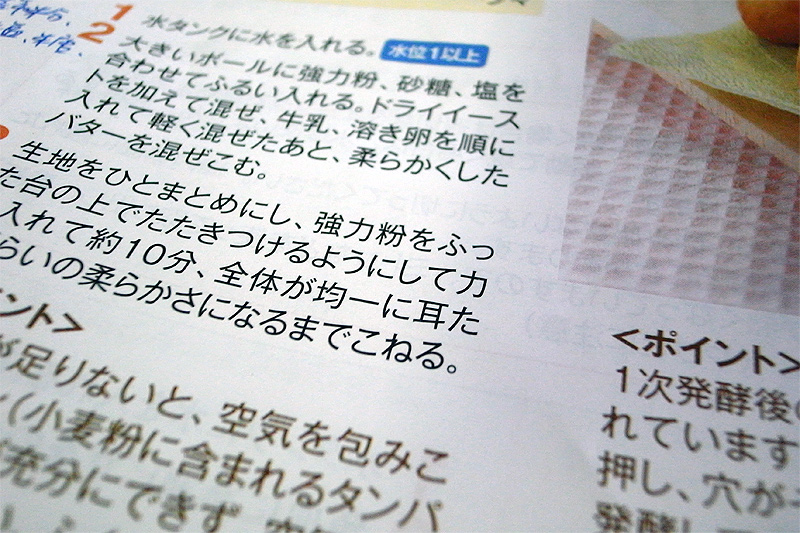 1 水タンクに水を入れる。 水位1以上
2 大きいボールに強力粉、砂糖、塩を
合わせてふるい入れる。ドライイース
トを加えて混ぜ、牛乳、溶き卵を順に
入れて軽く混ぜたあと、柔らかくした
バターを混ぜこむ。
生地をひとまとめにし、強力粉をふっ
た台の上でたたきつけるようにして力
入れて約10分、全体が均一に耳た
らいの柔らかさになるまでこねる。
ント>
が足りないと、空気を包みこ
(小麦粉に含まれるタンパ
充分にできず、空
<ポイント>
1次発酵後
れています
押し、穴が
発酵し